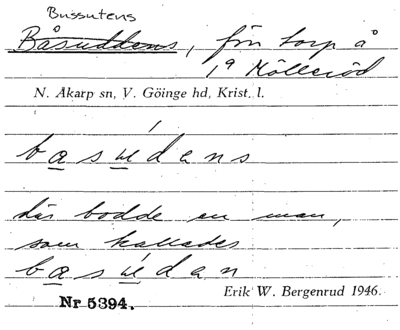 Bussutens
Båsuddens, f.n torp å
1⁹ Mölleröd
N. Åkarp sn, V. Göinge hd, Krist. l.
basúdans
där bodde en man,
som kallades
basúdan
Erik W. Bergenrud 1946.
Nr 5394.